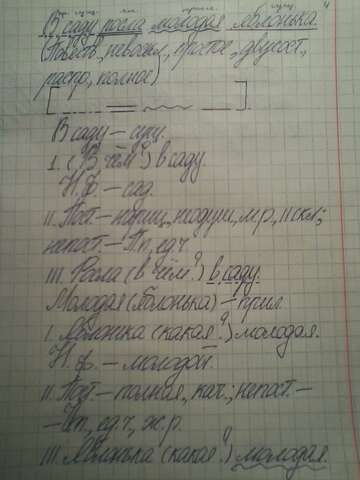 В саду росла молодая яблонька.
(Повеств, невоскл, простое, двусост,
распр, полное)
В саду – сущ.
I. (В чём?) в саду
Н.Ф. – сад.
II. Пост – нариц, неодуш, м.р, II скл;
непост. – П.п, ед.ч
III. Росла (в чём?) в саду.
Молодая (яблонька) – прил.
I. Яблонька (какая?) молодая.
Н.Ф. – молодой.
II. Пост – полная, кач.; непост. –
– И.п, ед.ч, ж.р.
III. Яблонька (какая?) молодая.